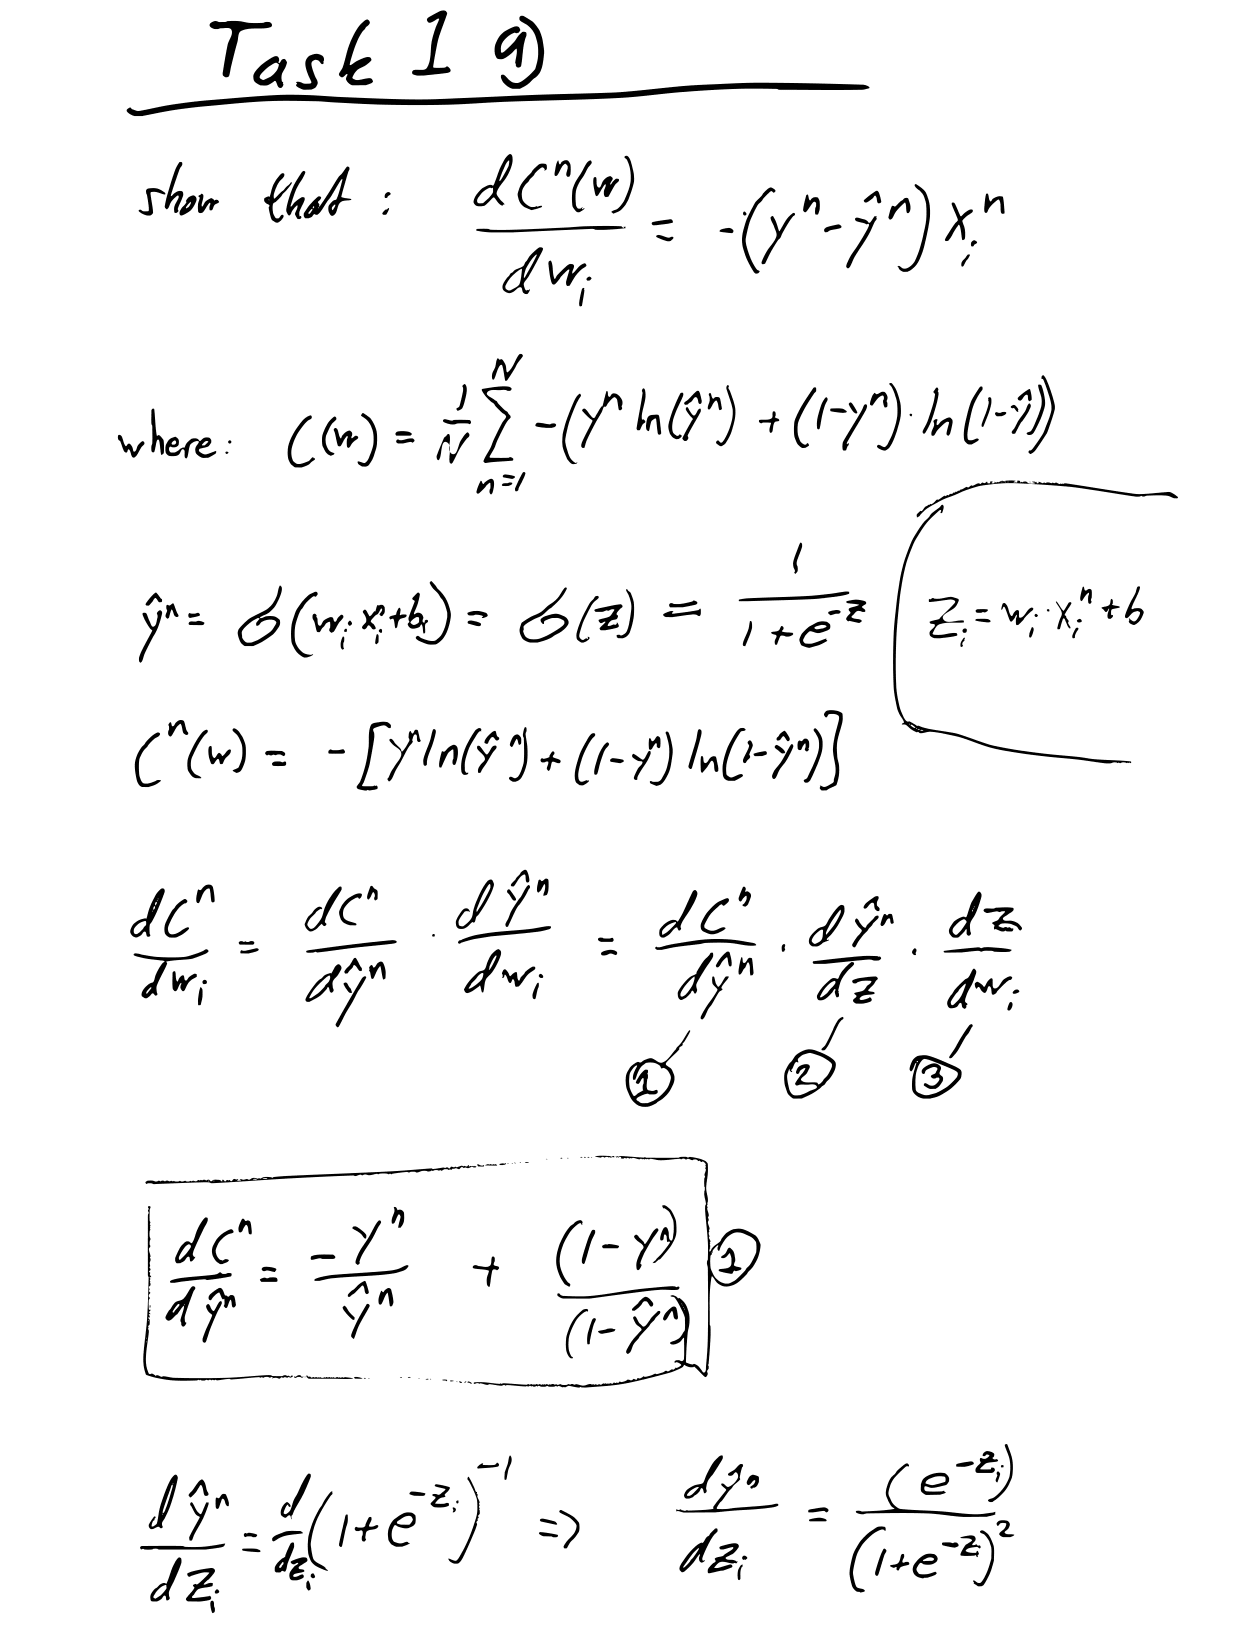 Task 1 a)
show that: dCⁿ(w)/dwᵢ = -(yⁿ - ŷⁿ) xᵢⁿ
where: C(w) = 1/N ∑_{n=1}^{N} -(yⁿ ln(ŷⁿ) + (1-yⁿ)·ln(1-ŷ))
ŷⁿ = σ(wᵢ·xᵢⁿ+b) = σ(z) = 1/(1+e^{-z})
zᵢ = wᵢ·xᵢⁿ+b
Cⁿ(w) = -[yⁿ ln(ŷⁿ) + (1-yⁿ) ln(1-ŷⁿ)]
dCⁿ/dwᵢ = dCⁿ/dŷⁿ · dŷⁿ/dwᵢ = dCⁿ/dŷⁿ · dŷⁿ/dz · dz/dwᵢ
① ② ③
dCⁿ/dŷⁿ = -yⁿ/ŷⁿ + (1-yⁿ)/(1-ŷⁿ) ①
dŷⁿ/dzᵢ = d/dzᵢ (1+e^{-zᵢ})^{-1} => dŷⁿ/dzᵢ = (e^{-zᵢ})/(1+e^{-zᵢ})²